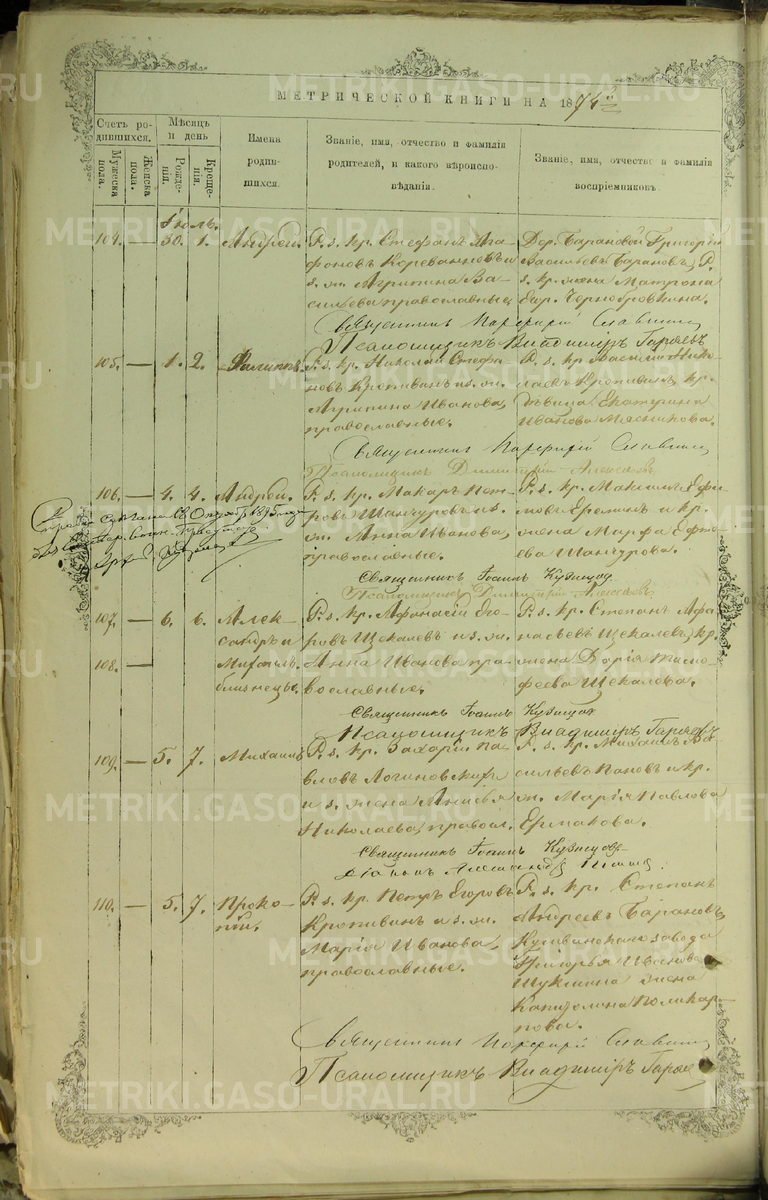 МЕТРИЧЕСКОЙ КНИГИ НА 1874й
Счетъ родившихся.
Мужеска пола.
Женска пола.
Мѣсяцъ и день
Рожденія.
Крещенія.
Имена родившихся.
Званіе, имя, отчество и фамилія родителей, и какого вѣроисповѣданія.
Званіе, имя, отчество и фамилія воспріемниковъ.
Іюль.
104. — 30. 1. Андрей.
Р. з. кр. Стефанъ Ага-
фоновъ
з. ж. Агрипина Ва-
сильева православные.
Дер. Барановой Григорій
Васильевъ Барановъ, Р.
з. кр. жена Матрона
Чернобровкина.
Священникъ Порфирій Славнинъ
Псаломщикъ Владиміръ Гаряевъ
105. — 1. 2. Филиппъ.
Р. з. кр. Николай Стефа-
новъ Кропивинъ и з. ж.
Агрипина Иванова,
православные.
Р. з. кр. Василій Нико-
лаевъ Кропивинъ, кр.
дѣвица Екатерина
Иванова Мясникова.
Священникъ Порфирій Славнинъ
Псаломщикъ Димитрій Алексѣевъ
106. — 4. 4. Андрей.
Р. з. кр. Макаръ Пет-
ровъ Шанчуровъ и з.
ж. Анна Иванова,
православные.
Р. з. кр. Максимъ Ефи-
мовъ Ереминъ и кр.
жена Марфа
Шанчурова.
Священникъ Іоаннъ Кузнецов
Псаломщикъ Димитрій Алексѣевъ
107. — 6. 6. Алек-
сандръ и
108. — Михаилъ.
близнецы.
Р. з. кр. Афанасій Его-
ровъ Щекалевъ и з. ж.
Анна Иванова пра-
вославные.
Р. з. кр. Степанъ Афа-
насьевъ Щекалевъ, кр.
жена Дарія Тимо-
феева Щекалева.
Священникъ Іоаннъ Кузнецов
Псаломщикъ Владиміръ Гаряевъ
109. — 5. 7. Михаилъ
Р. з. кр. Захарій Па-
вловъ Логиновскихъ
и з. жена
Николаева, правосл.
Р. з. кр. Михаилъ Ва-
сильевъ Пановъ и кр.
ж. Марія Павлова
Ермакова.
Священникъ Іоаннъ Кузнецовъ
Діаконъ Александръ
110. — 5. 7. Проко-
пій.
Р. з. кр. Петръ Егоровъ
Кропивинъ и з. ж.
Марія Иванова,
православные.
Р. з. кр. Степанъ
Андреевъ Барановъ,
Кушвинскаго завода
Григорья Иванова
Шуклина жена
Капитолина Поликар-
пова.
Священникъ Порфирій Славнинъ
Псаломщикъ Владиміръ Гаряев
METRIKI.GASO-URAL.RU